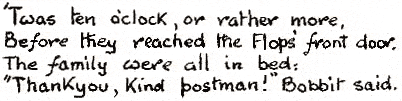 'Twas ten o'clock, or rather more,
Before they reached the Flops' front door.
The family were all in bed:
"Thankyou, Kind postman!" Bobbit said.